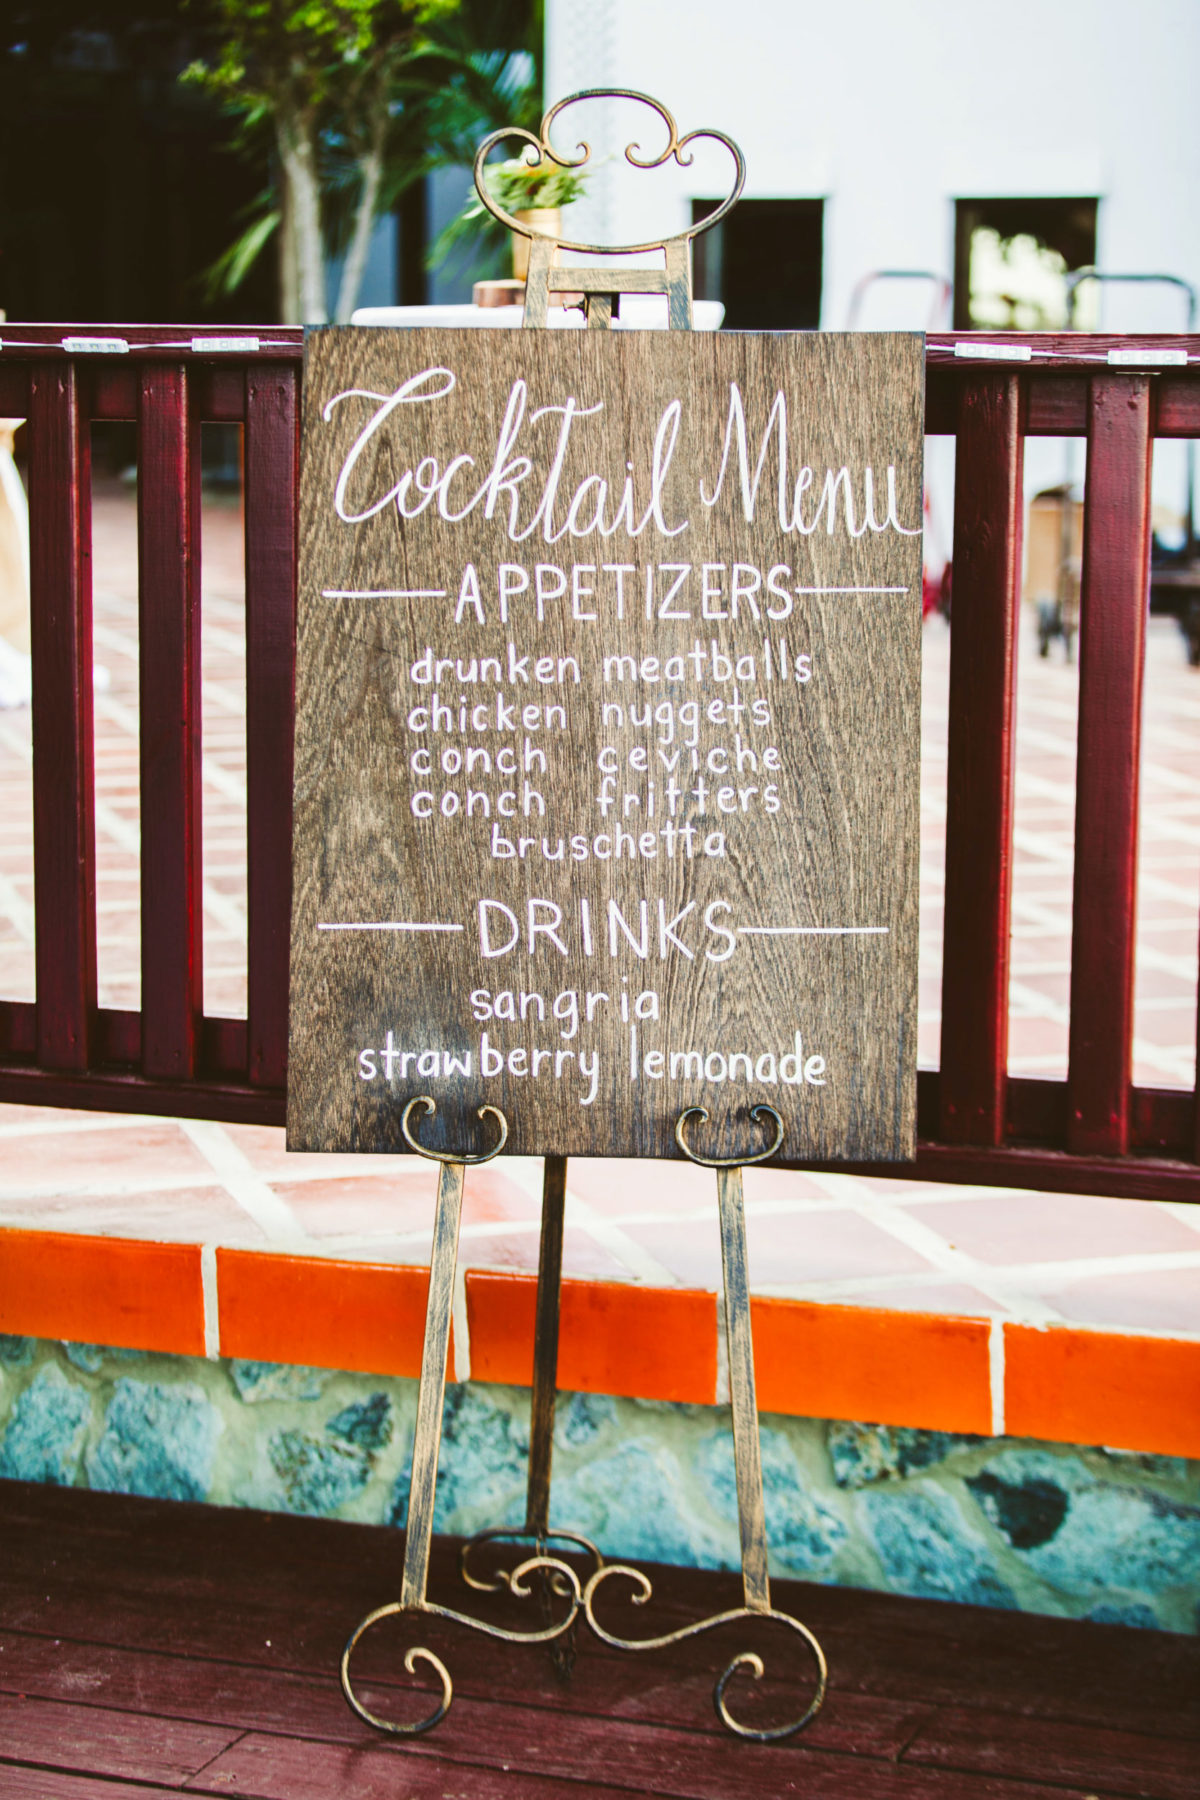 Cocktail Menu
APPETIZERS
drunken meatballs
chicken nuggets
conch ceviche
conch fritters
bruschetta
DRINKS
sangria
strawberry lemonade